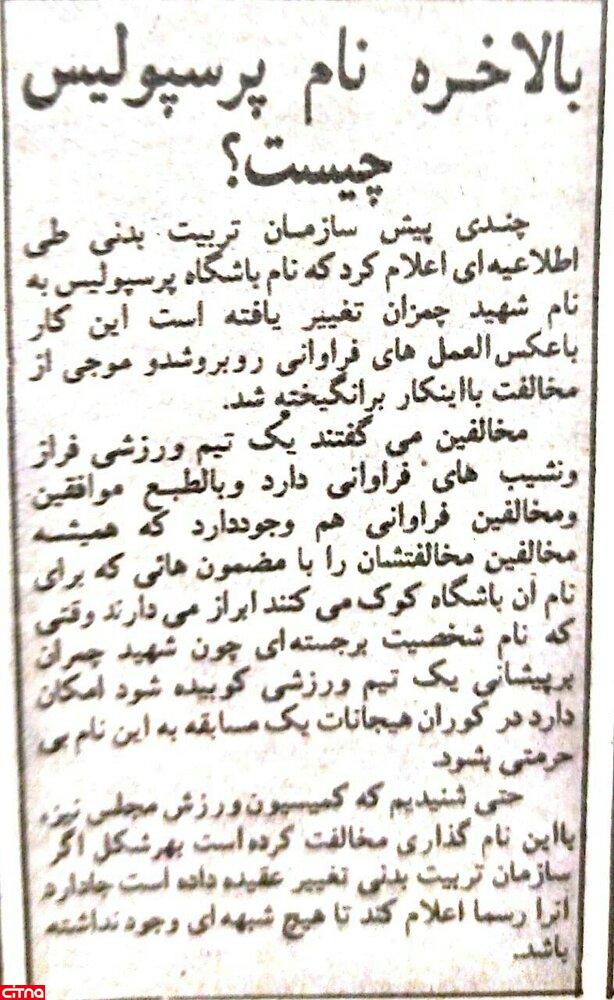 بالاخره نام پرسپولیس
چیست؟
چندی پیش سازمان تربیت بدنی طی
اطلاعیه‌ای اعلام کرد که نام باشگاه پرسپولیس به
نام شهید چمران تغییر یافته است این کار
باعکس‌العمل های فراوانی روبروشدو موجی از
مخالفت بااینکار برانگیخته شد.
مخالفین می گفتند یک تیم ورزشی فراز
ونشیب های فراوانی دارد وبالطبع موافقین
ومخالفین فراوانی هم وجوددارد که همیشه
مخالفین مخالفتشان را با مضمون هائی که برای
نام آن باشگاه کوک می کنند ابراز می دارند وقتی
که نام شخصیت برجسته‌ای چون شهید چمران
برپیشانی یک تیم ورزشی کوبیده شود امکان
دارد در کوران هیجانات یک مسابقه به این نام بی
حرمتی بشود.
حتی شنیدیم که کمیسیون ورزش مجلس نیزه
بااین نام گذاری مخالفت کرده است بهرشکل اگر
سازمان تربیت بدنی تغییر عقیده داده است جادارد
آنرا رسما اعلام کند تا هیچ شبهه ای وجود نداشته
باشد.
citna